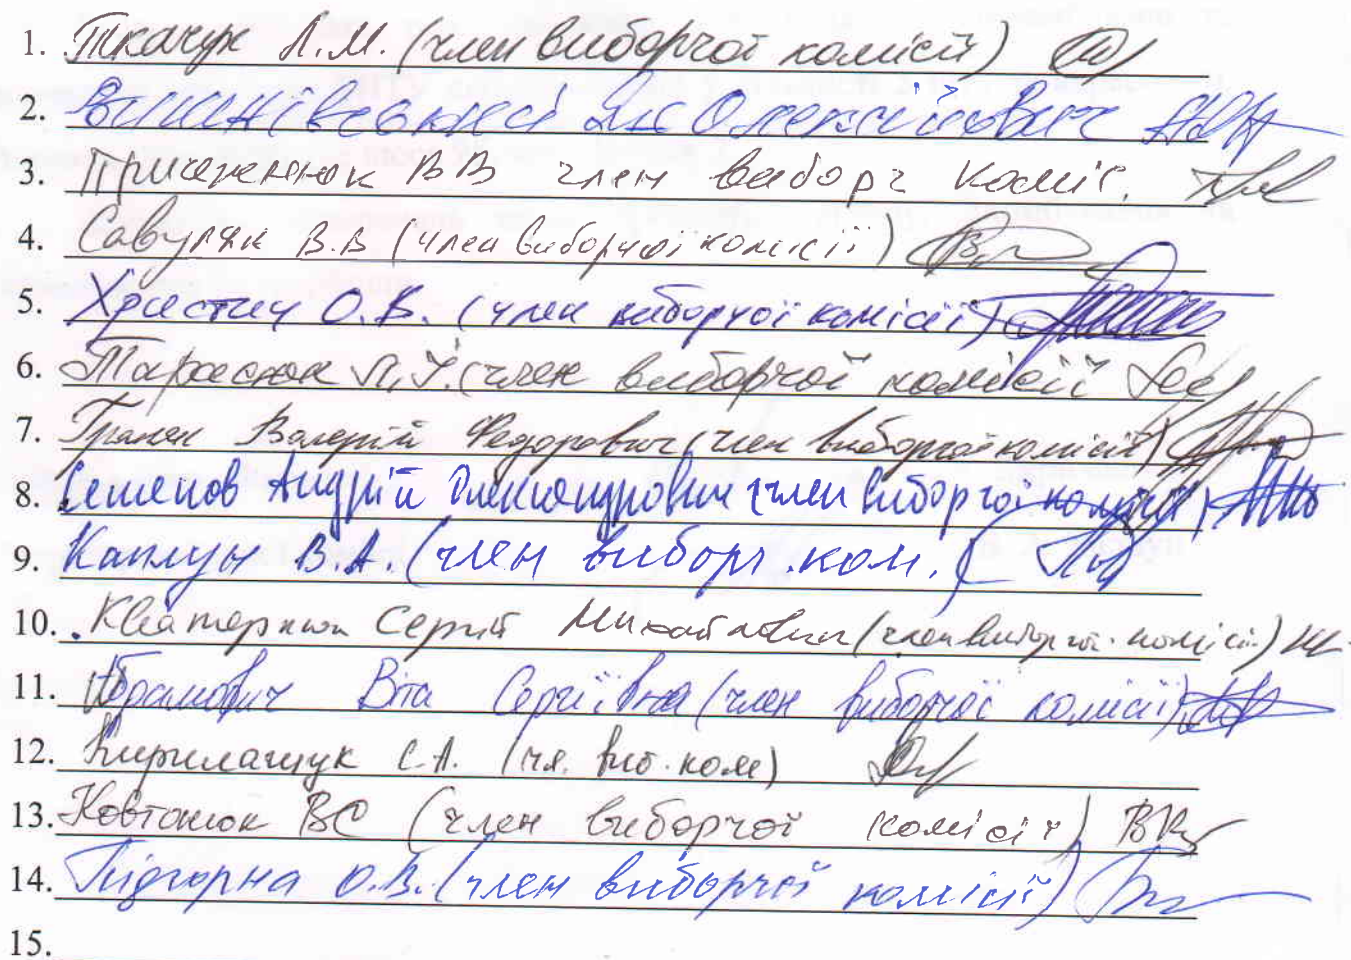 1. Ткачук Л.М. (член виборчої комісії)
2. Олексійович
3. Присяжнюк ВВ член виборч коміс.
4. Савуляк В.В. (член виборчої комісії)
5. Христич О.В. (член виборчої комісії)
6. Тарасюк (член виборчої комісії
7. Граняк Валерій Федорович (член виборчої комісії)
8. Семенов Андрій Олександрович (член виборчої комісії)
9. Каплун В.А. (член виборч. ком.)
10. Кватернюк Сергій Михайлович (член виборчої комісії)
11. Абрамович Віта Сергіївна (член виборчої комісії)
12. Кирилащук С.А. (чл. виб. ком)
13. Ковтонюк ВС (член виборчої комісії)
14. Підгорна О.В. (член виборчої комісії)
15.